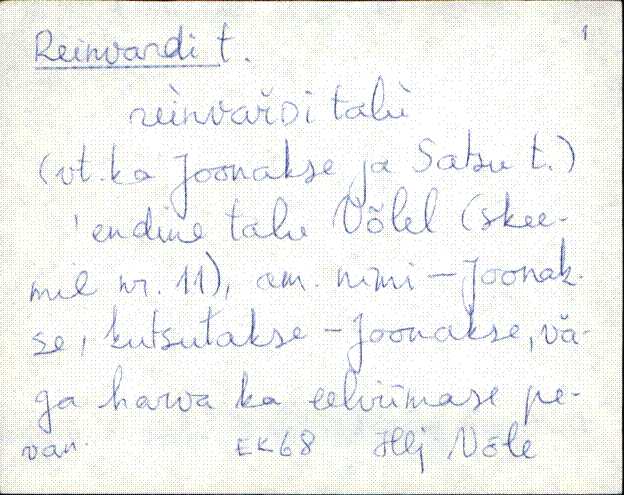 Reinvardi t.
1
rèinvaŕDi talù
(vt. ka Joonakse ja Satsu t.)
'endine talu Võlel (skee-
mil nr. 11), am. nimi – Joonak-
se, kutsutakse – Joonakse, vä-
ga harva ka eelviimase pe-
van.
EK68 Hlj Võle